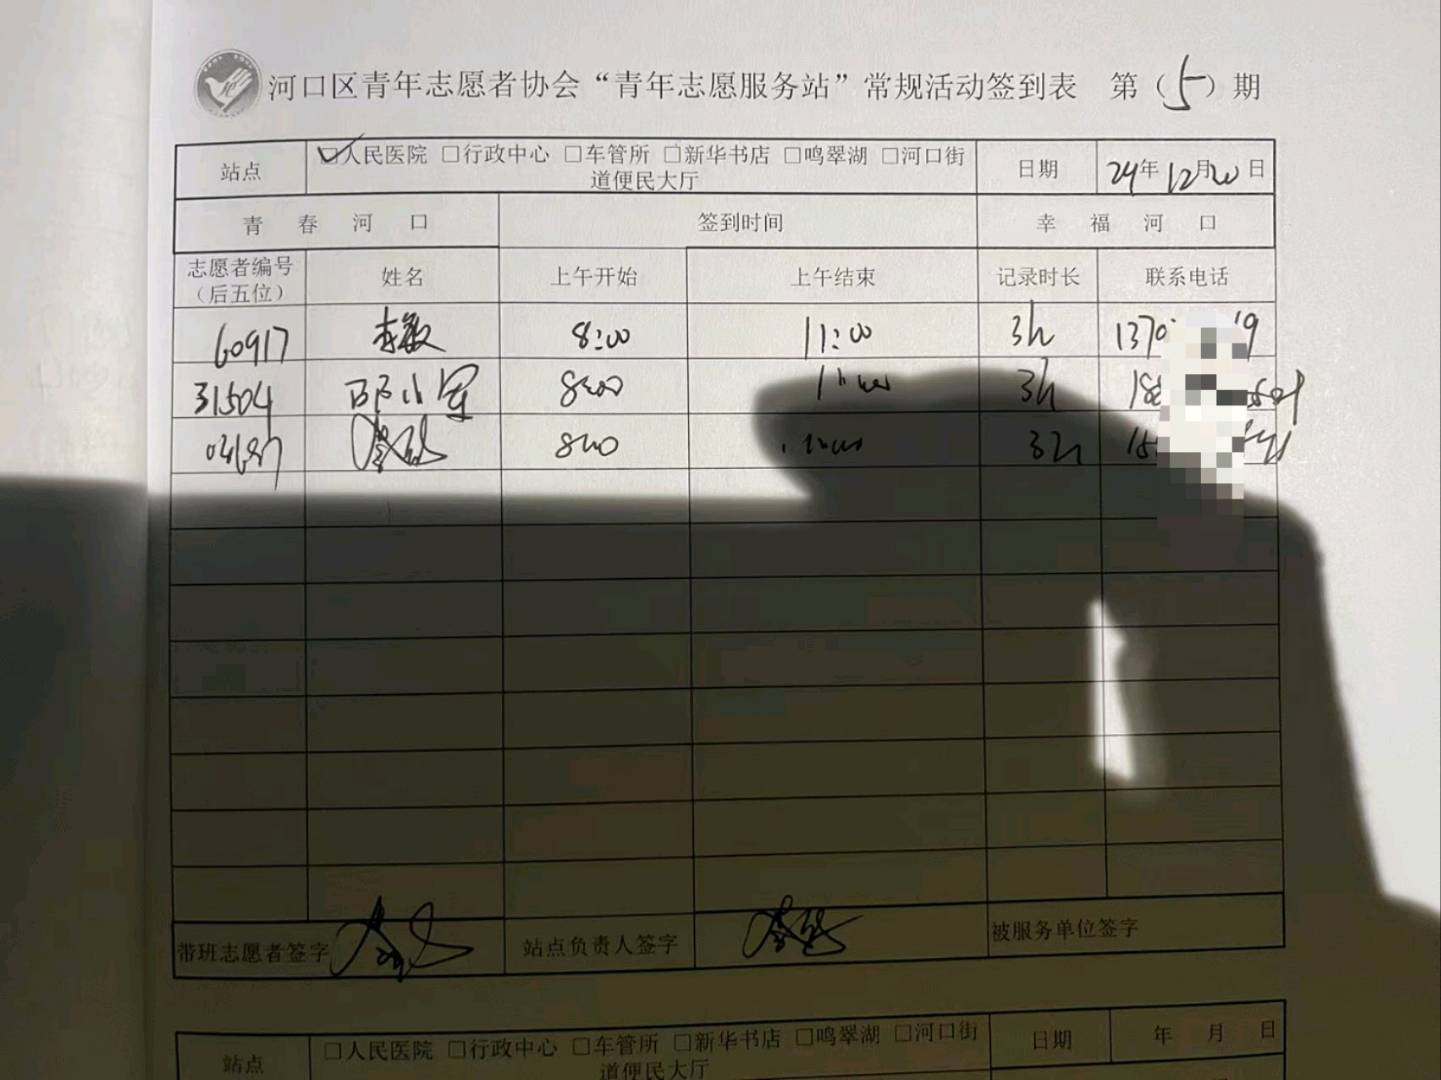 河口区青年志愿者协会“青年志愿服务站”常规活动签到表 第（5）期
站点 ☑人民医院 □行政中心 □车管所 □新华书店 □鸣翠湖 □河口街道便民大厅 日期 24年12月20日
青春河口 签到时间 幸福河口
志愿者编号（后五位） 姓名 上午开始 上午结束 记录时长 联系电话
60917 李敏 8:00 11:00 3h 1370 19
31504 邵小军 8:00 11:00 3h
8:00 3h
带班志愿者签字 站点负责人签字 被服务单位签字
站点 □人民医院 □行政中心 □车管所 □新华书店 □鸣翠湖 □河口街道便民大厅 日期 年 月 日